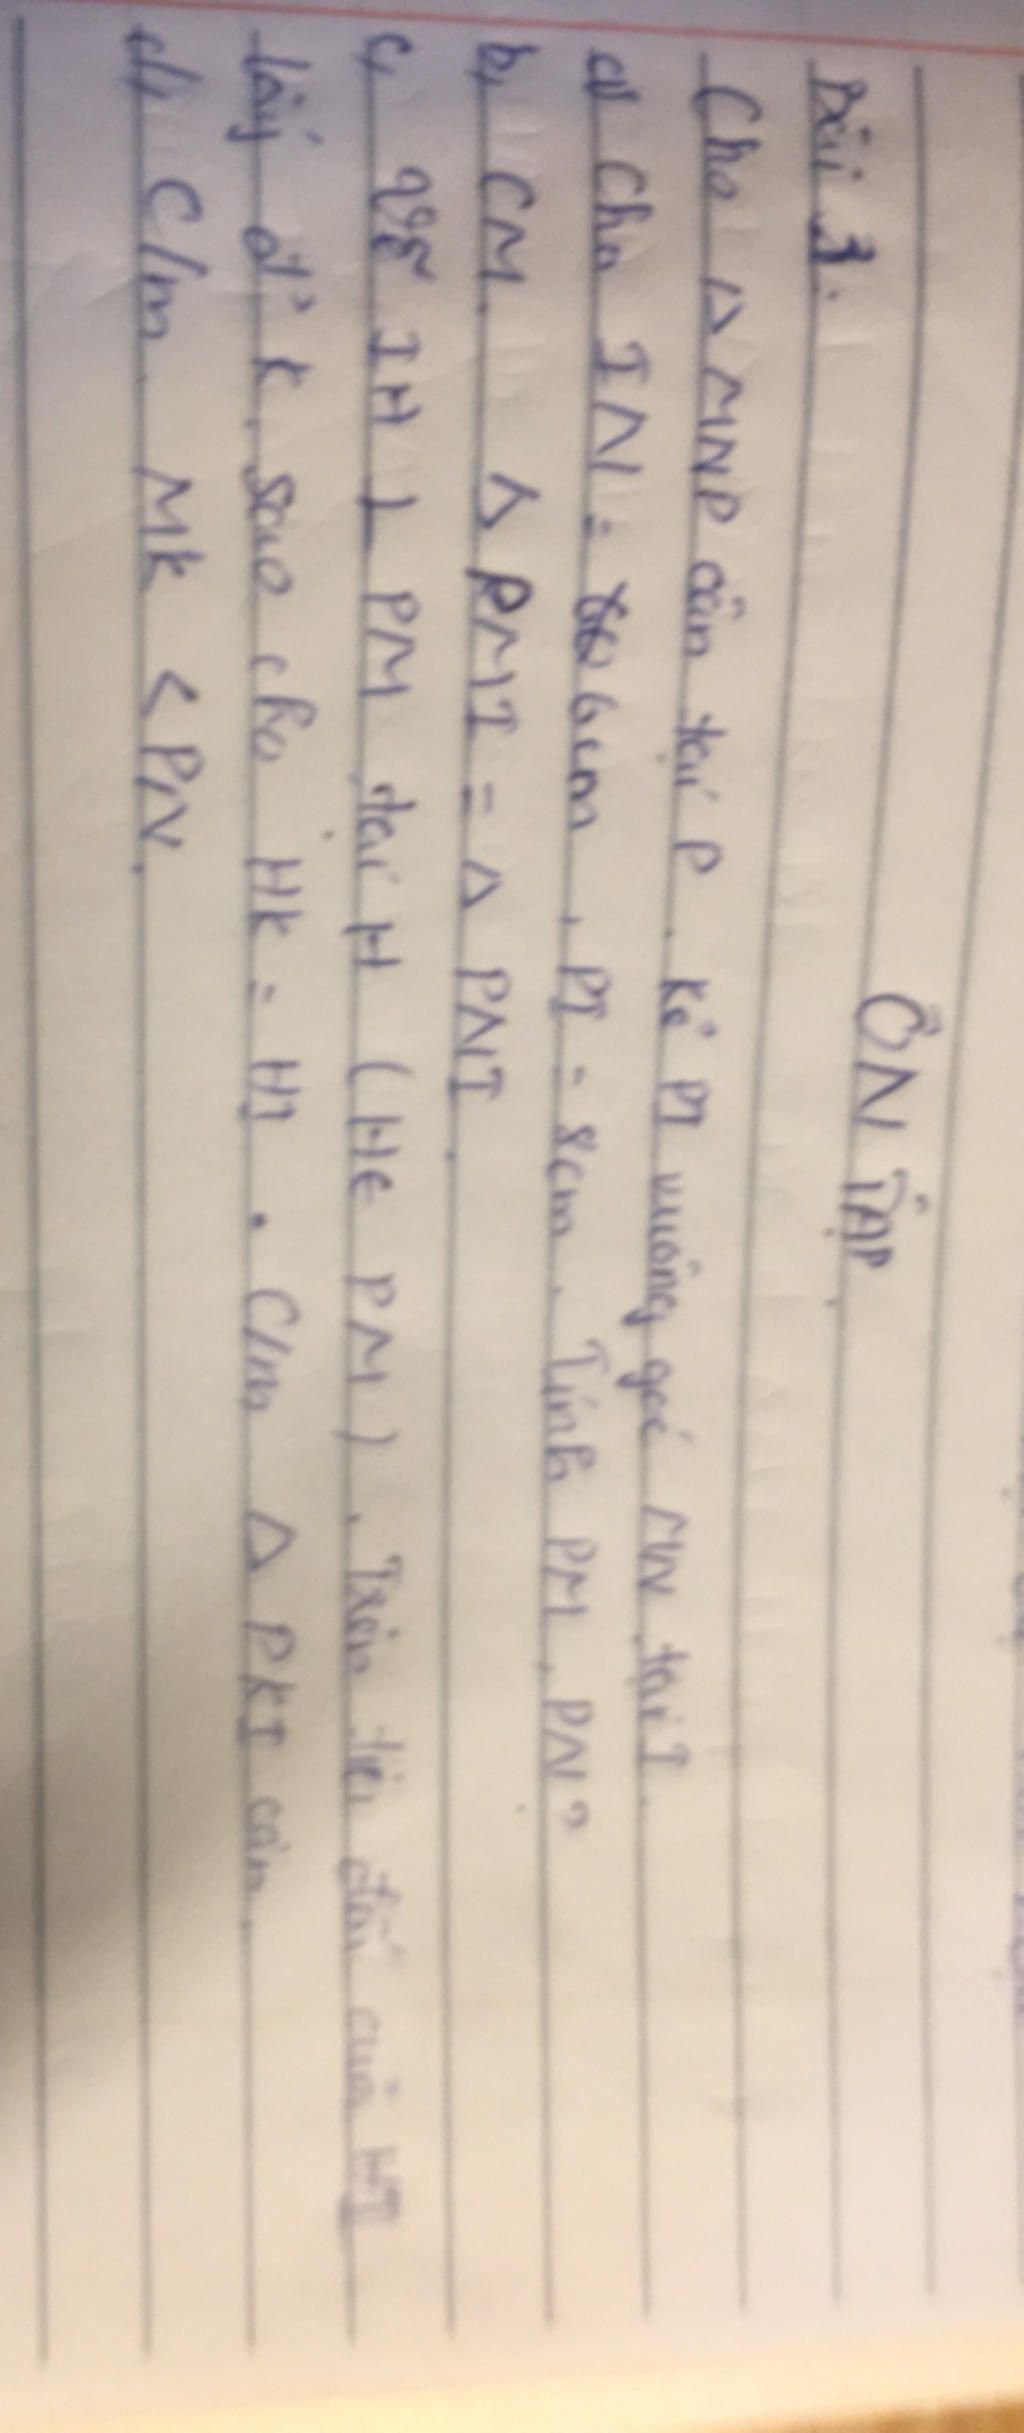 ÔN TẬP
Bài 3:
Cho △ MNP cân tại P. Kẻ PI vuông góc MN tại I.
a, Cho IN = 6cm, PI = 8cm. Tính PM, PN?
b, CM. △ PMI = △ PNI.
c, Vẽ IH ⊥ PM tại H (H∈ PM). Trên tia đối của HI
lấy đ' K sao cho HK = HI. C/m △ PKI cân.
d, C/m. MK < PN.